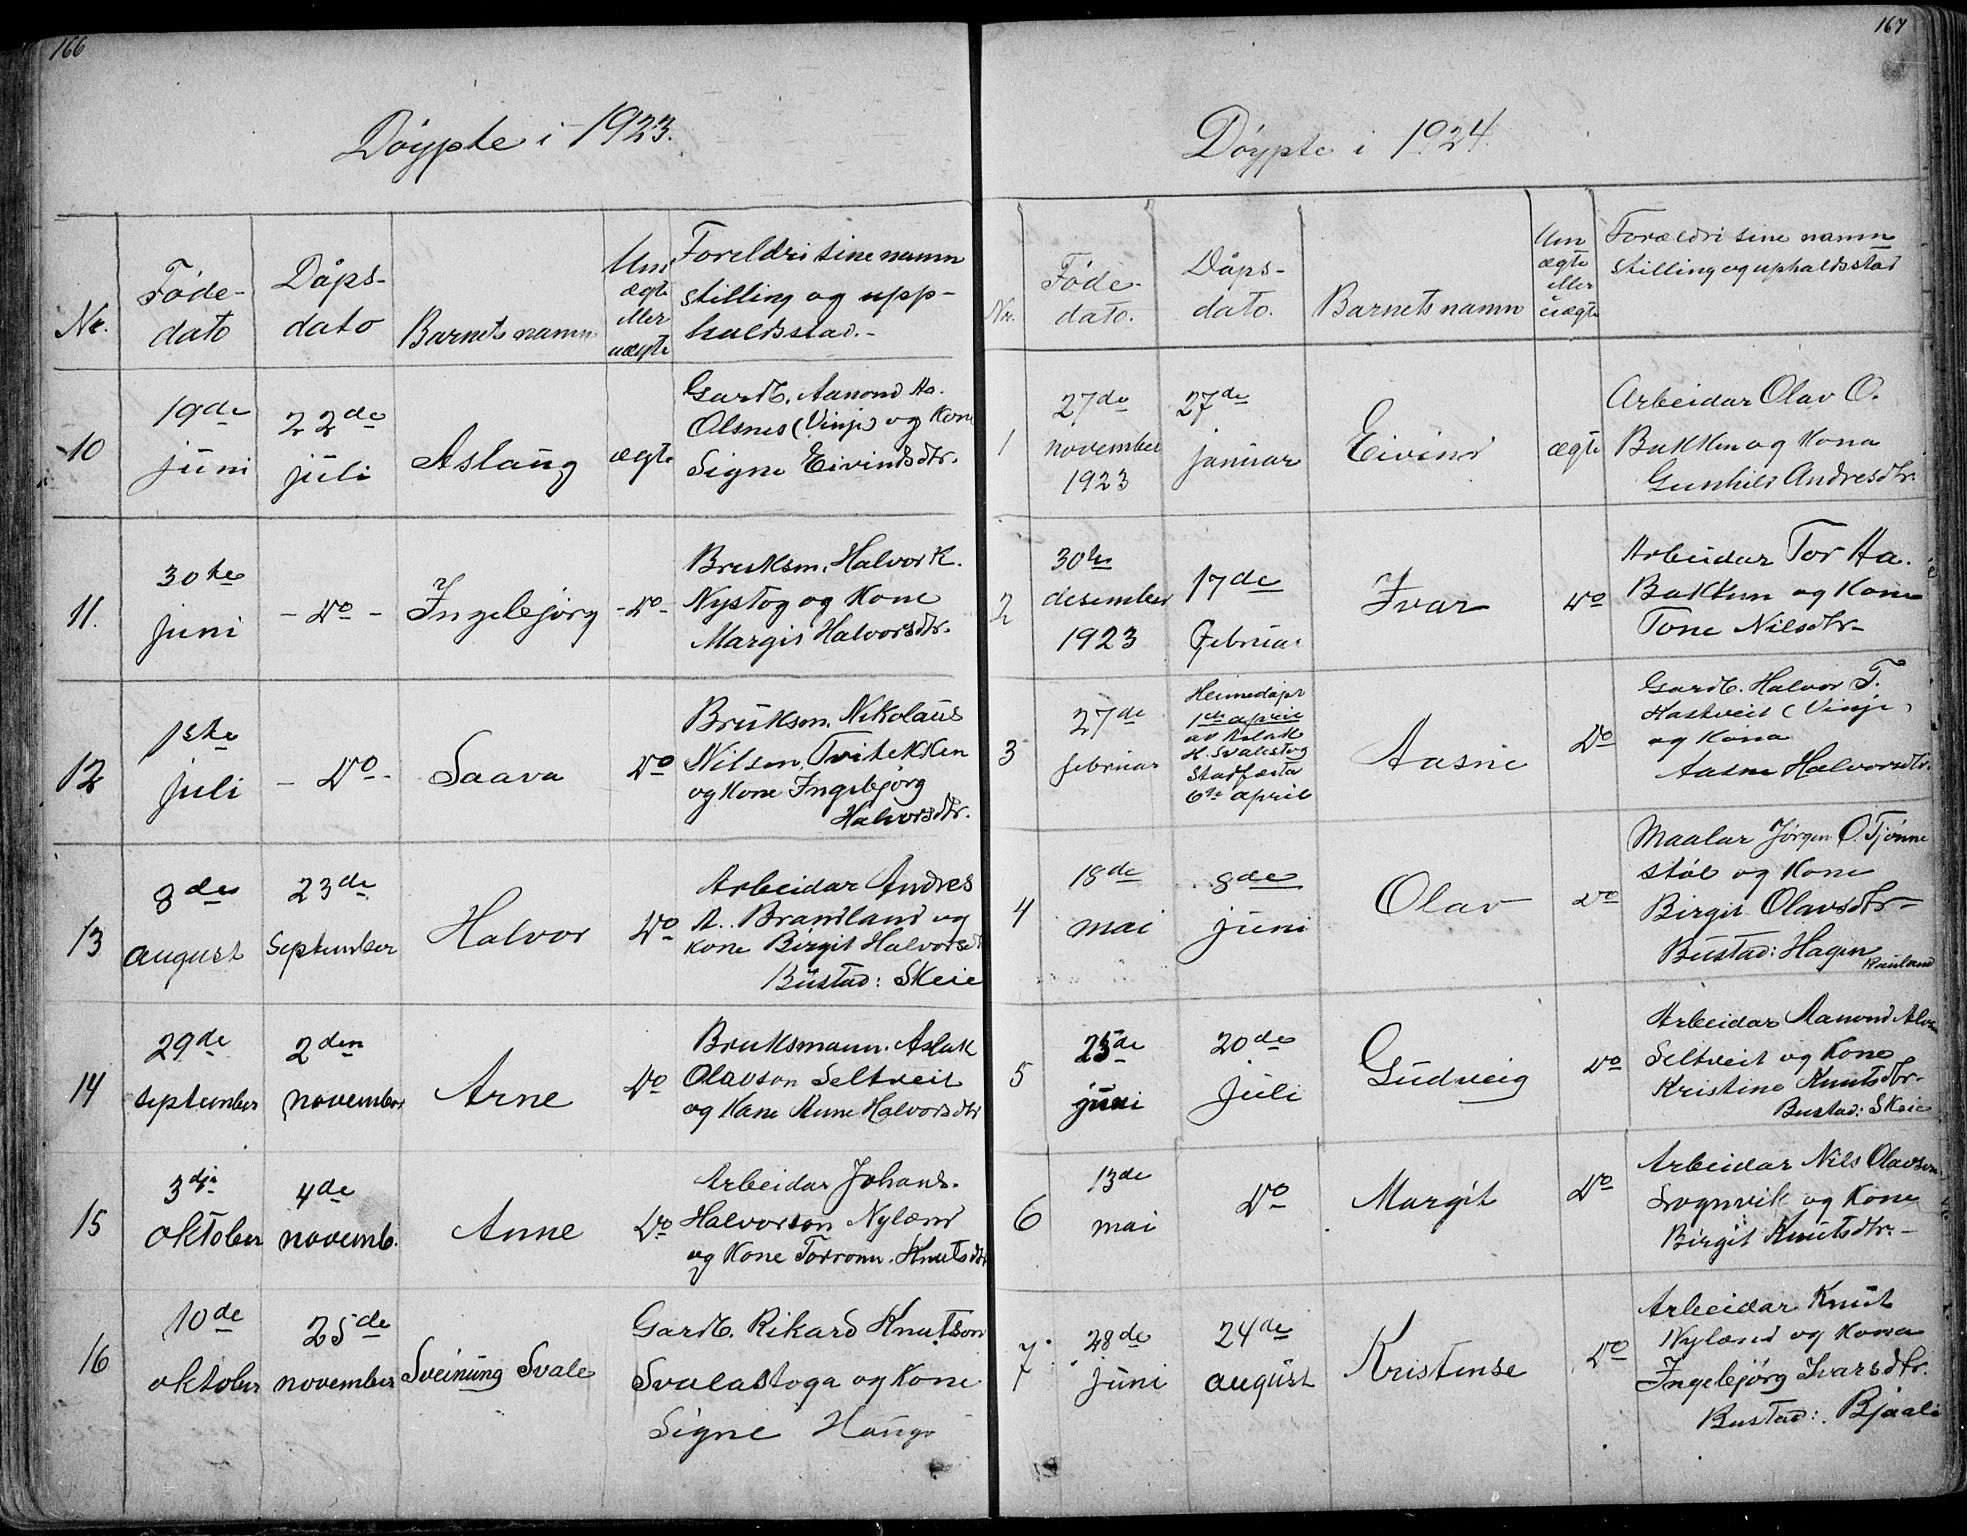 166
Döypte i 1923.
Nr.
Føde-
dato
Dåps-
dato
Barnets namn
Um
ægte
eller
uægte
Foreldri sine namn
stilling og upp-
haldsstad.-
10
19de
juni
22de
juli
Aslaug
ægte
Gardb. Aamond Aa.
Olsnes (Vinje) og Kone
Signe Eivindsdtr.
11.
30te
juni
- Do -
Ingebjörg
- Do -
Bruksm. Halvor K.
Nystog og Kone
Margit Halvorsdtr.
12
1ste
juli
- Do -
Saava
Do
Bruksm. Nikolaus
Nilsen, Tvitekken
og Kone Ingebjörg
Halvorsdtr.
13
8de
august
23de
September
Halvor
Do
Arbeidar Andres
A. Brandland og
Kone Birgit Halvorsd
Bustad: Skeie
14
29de
september
2den
november
Arne
Do
Bruksmann. Aslak
Olavson Seltveit
og Kone Anne Halvorsdtr
15
3dje
oktober
4de
novemb.
Anne
Do
Arbeidar Johans.
Halvorson Nylænd
og Kone Torronn. Knutsdtr
16
10de
oktober
25de
november
Sveinung Svale
Gardb. Rikard Knutson
Svalastoga og Kone
Signe Hauge
167
Döypte i 1924.
Nr.
Føde-
dato.
Dåps-
dato.
Barnets namn
Um
ægte
eller
uægte
Forældri sine namn
stilling og uphaldsstad
1
27de
november
1923
27de
januar
Eivind
ægte
Arbeidar Olav O.
Bakken og Kona
Gunhild Andresdtr.
2
30te
desember
1923
17de
Februar
Ivar
Do
Arbeidar Tor Aa.
Bakken og Kone
Tone Nilsdtr-
3
27de
februar
Heimedøpt
1ste april
av Aslak
H. Svalestog
Stadfæsta
6te april
Aasne
Do
Gardb. Halvor T.
Hastveit (Vinje)
og Kona
Aasne Halvorsdtr.
4
18de
mai
8de
juni
Olav
Do
Maalar Jørgen O. Tjönne
støl og Kone
Birgit Olavsdtr-
Bustad: Hagen
Rauland
5
25de
juni
20de
juli
Gudveig
Do
Arbeidar Aamond
Seltveit og Kone
Kristine Knutsdtr.
Bustad: Skeie
6
13de
mai
Do
Margit
Do
Arbeidar Nils Olavson
Sognvik og Kone
Birgit Knutsdtr.-
7.
28de
juni
24de
august
Kristense
Do
Arbeidar Knut
Nylænd og Kona
Ingebjörg Ivarsdtr.
Bustad: Bjaali